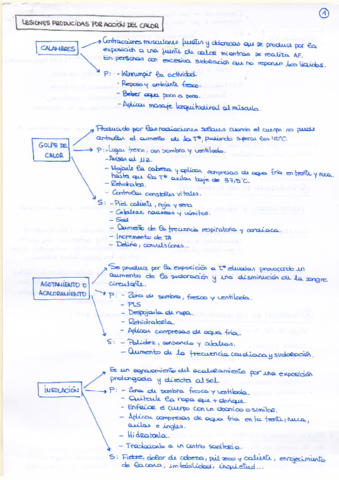 ①
LESIONES PRODUCIDAS POR ACCIÓN DEL CALOR
CALAMBRES
Contracciones musculares fuertes y dolorosas que se produce por la
exposición a una fuente de calor mientras se realiza AF.
En personas con excesiva sudoración que no reponen los líquidos.
P: - Interrumpir la actividad
- Reposo y ambiente fresco.
- Beber agua poco a poco.
- Aplicar masaje longitudinal al músculo.
GOLPE DE
CALOR
Producido por las radiaciones solares cuando el cuerpo no puede
controlar el aumento de la Tª, pudiendo superar los 40°C.
P: - Lugar fresco, con sombra y ventilado.
- Avisar al 112.
- Mojarle la cabeza y aplicar compresas de agua fría en frente y nuca
hasta que la Tª axilar baje de 37,5°C.
- Rehidratar.
- Controlar constantes vitales.
S: - Piel caliente, roja y seca
- Cefaleas, nauseas y vómitos.
- Sed
- Aumento de la frecuencia respiratoria y cardiaca.
- Incremento de TA
- Delirio, convulsiones...
AGOTAMIENTO O
ACALORAMIENTO
Se produce por la exposición a Tª elevadas provocando un
aumento de la sudoración y una disminución de la sangre
circulante.
P: - Zona de sombra, fresca y ventilada.
- PLS
- Despojarla de ropa.
- Rehidratarla.
- Aplicar compresas de agua fría.
S: - Palidez, somnolencia y cefaleas.
- Aumento de la frecuencia cardiaca y sudoración.
INSOLACIÓN
Es un agravamiento del acaloramiento por una exposición
prolongada y directa al sol.
P: - Zona de sombra fresca y ventilada.
- Quitarle la ropa que + abrigue.
- Enfriar el cuerpo con un abanico o similar.
- Aplicar compresas de agua fría en la frente, nuca,
axilas e ingles.
- Hidratarla.
- Trasladarla a un centro sanitario.
S: Fiebre, dolor de cabeza, piel seca y caliente, enrojecimiento
de la cara, irritabilidad, inquietud...